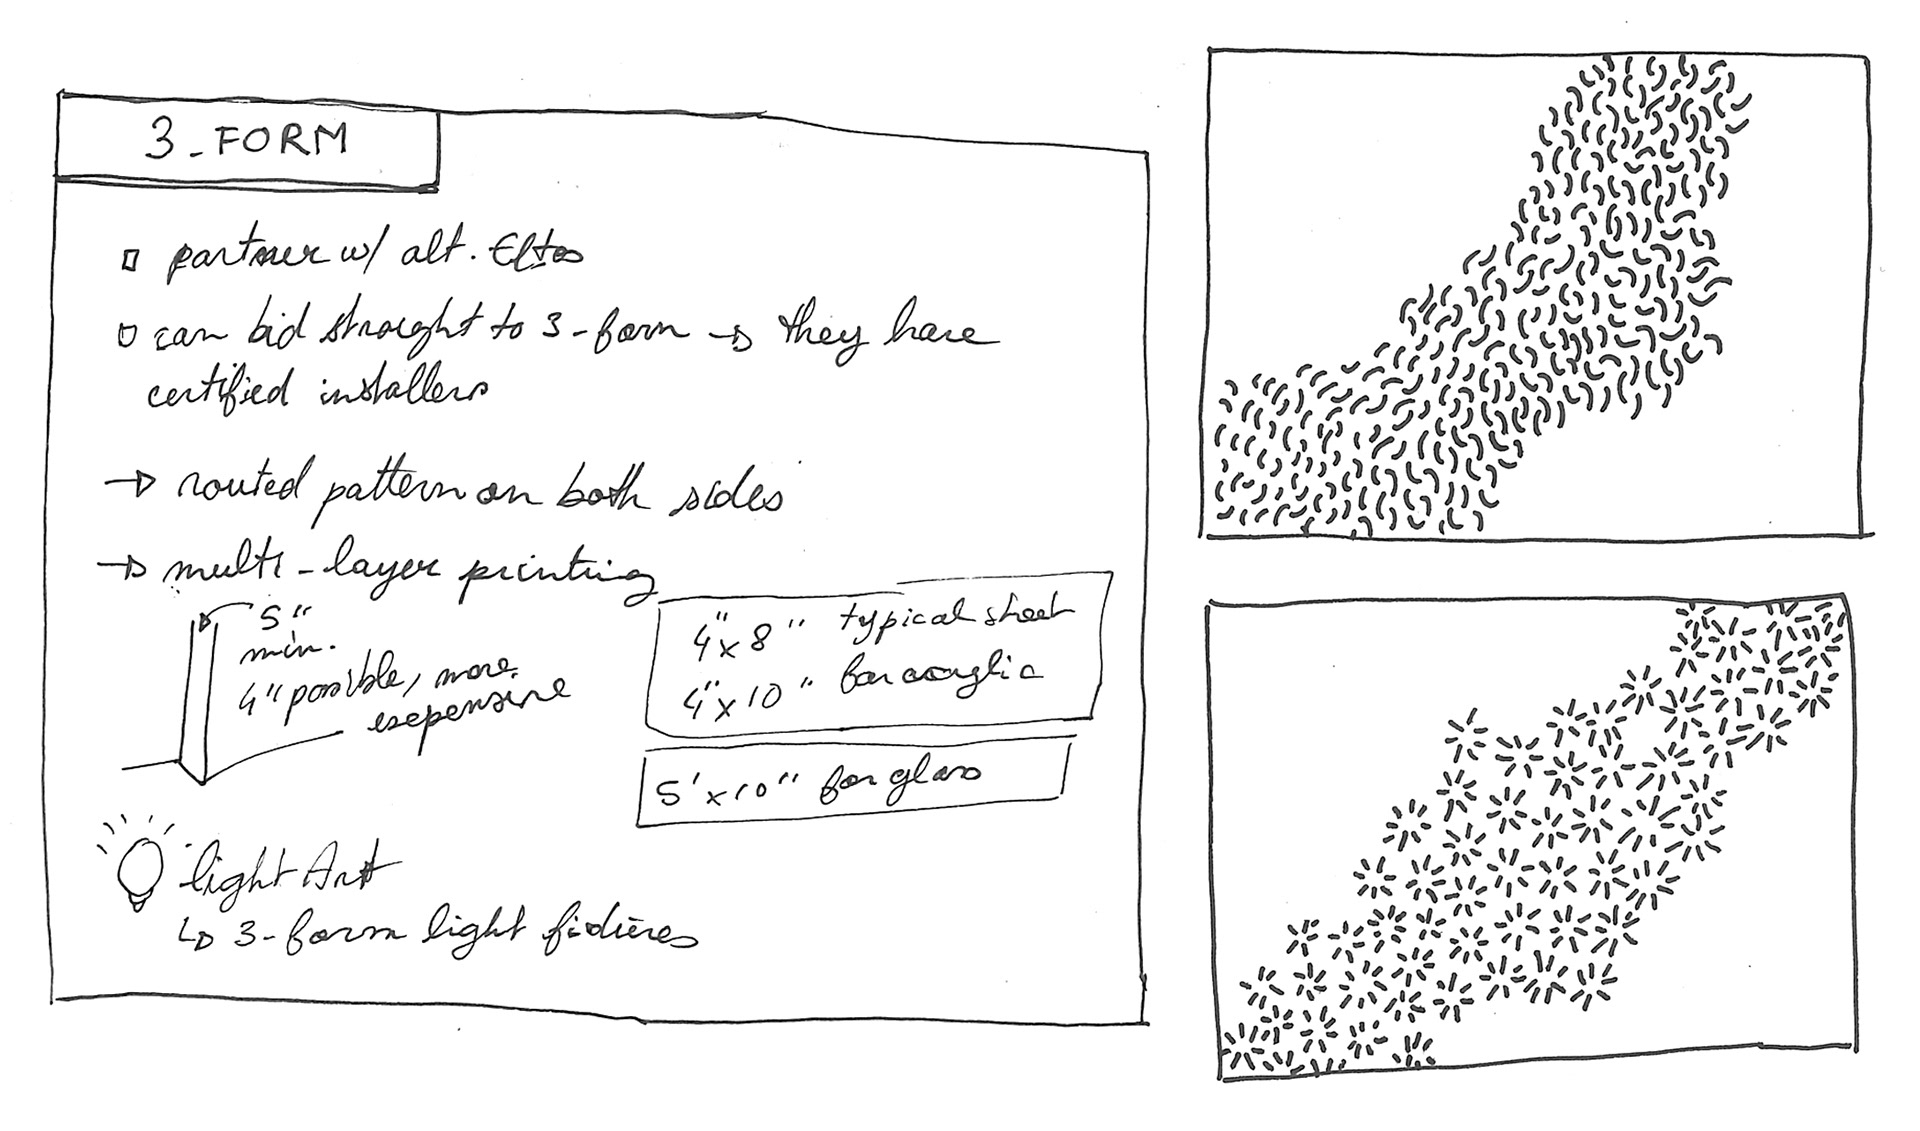 3_FORM
partner w/ alt.
can bid straight to 3-form → they have
certified installers
→ routed pattern on both sides
→ multi-layer printing
5"
min.
4" possible, more
expensive
4"x8" typical sheet
4"x10" for acrylic
5'x10" for glass
light Art
↳ 3-form light fixtures